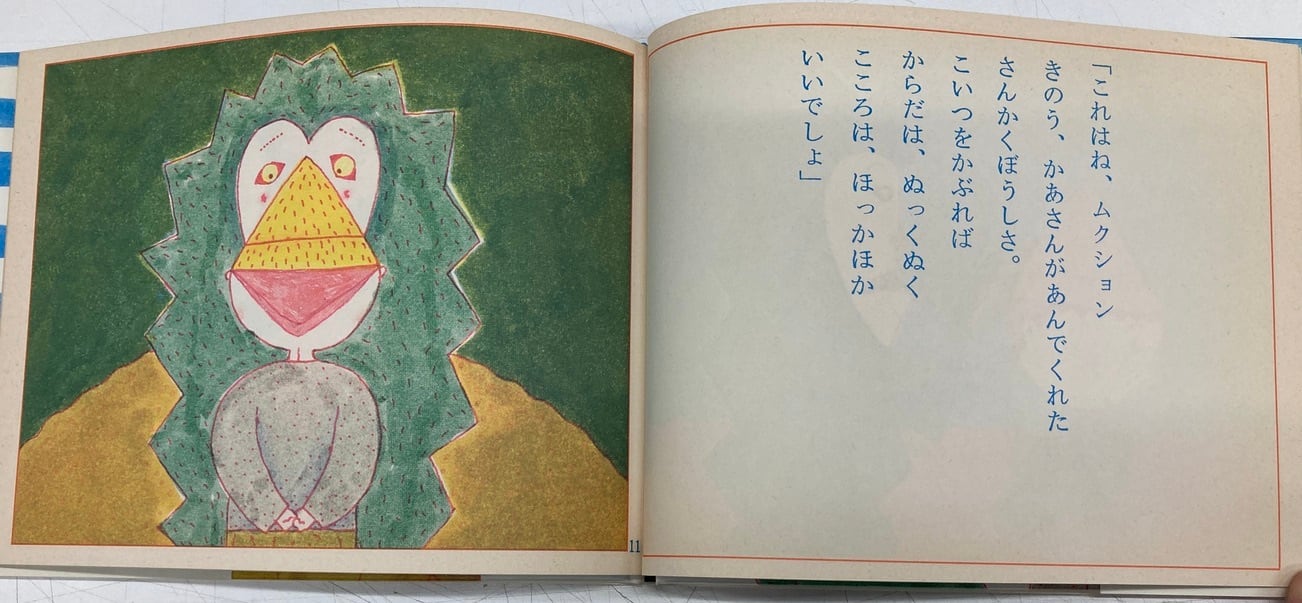 「これはね、ムクション
きのう、かあさんがあんでくれた
さんかくぼうしさ。
こいつをかぶれば
からだは、ぬっくぬく
こころは、ほっかほか
いいでしょ」
11